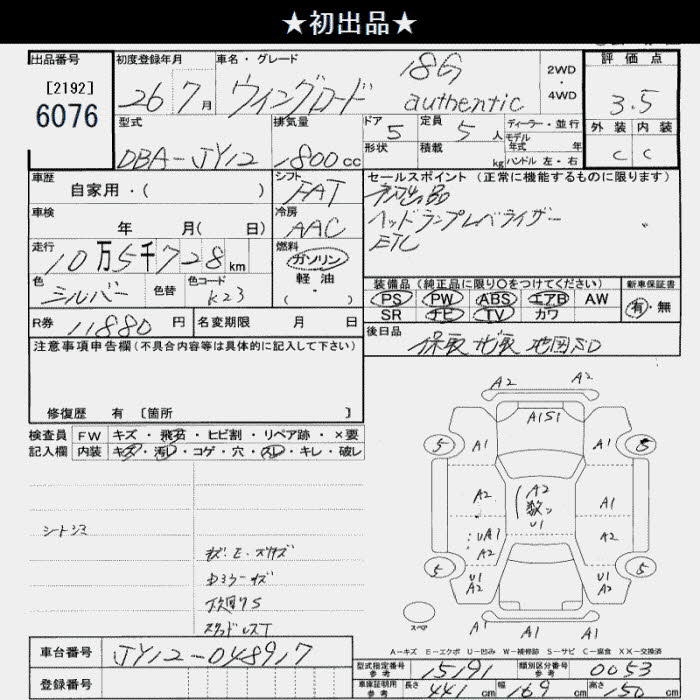 ★初出品★
出品番号
[2192]
6076
初度登録年月
26年7月
車名・グレード
ウイングロード
18G
authentic
2WD
・
4WD
評価点
3.5
外装 内装
C C
型式
DBA-JY12
排気量
1800cc
ドア
5
定員
5人
ディーラー・並行
モデル
年式 年
形状
積載
kg
ハンドル 左・右
車歴
自家用・( )
シフト
FAT
セールスポイント (正常に機能するものに限ります)
ヘッドランプレベライザー
ETC
車検
年 月( 日)
冷房
AAC
走行
10万5千728km
燃料
ガソリン
軽油
・
( )
色
シルバー
色替
色コード
K23
装備品(純正品に限り○をつけてください)
PS PW ABS エアB AW
SR ナビ TV カワ
新車保証書
有・無
R券
11880円
名変期限 月 日
後日品
保取 記取 地図SD
注意事項申告欄(不具合内容等は具体的に記入して下さい)
修復歴 有 [箇所 ]
検査員
記入欄
FW キズ・飛石・ヒビ割・リペア跡・×要
内装 キズ・汚レ・コゲ・穴・スレ・キレ・破レ
シートシミ
下廻りS
スタッドレスT
A2 A2
A1S1
5 A1 A1 5
A2
A2
数ッ
U1
A1
UA1
A2
A2
5 U1
A2
U1
A2 5
スペア
A1 A1 A1
A-キズ E-エクボ U-凹み W-補修跡 S-サビ C-腐食 XX-交換済
車台番号
JY12-048917
登録番号
型式指定番号
参考
15191
類別区分番号
参考
0053
車庫証明用
参考
長さ
441cm
幅
169cm
高さ
150cm